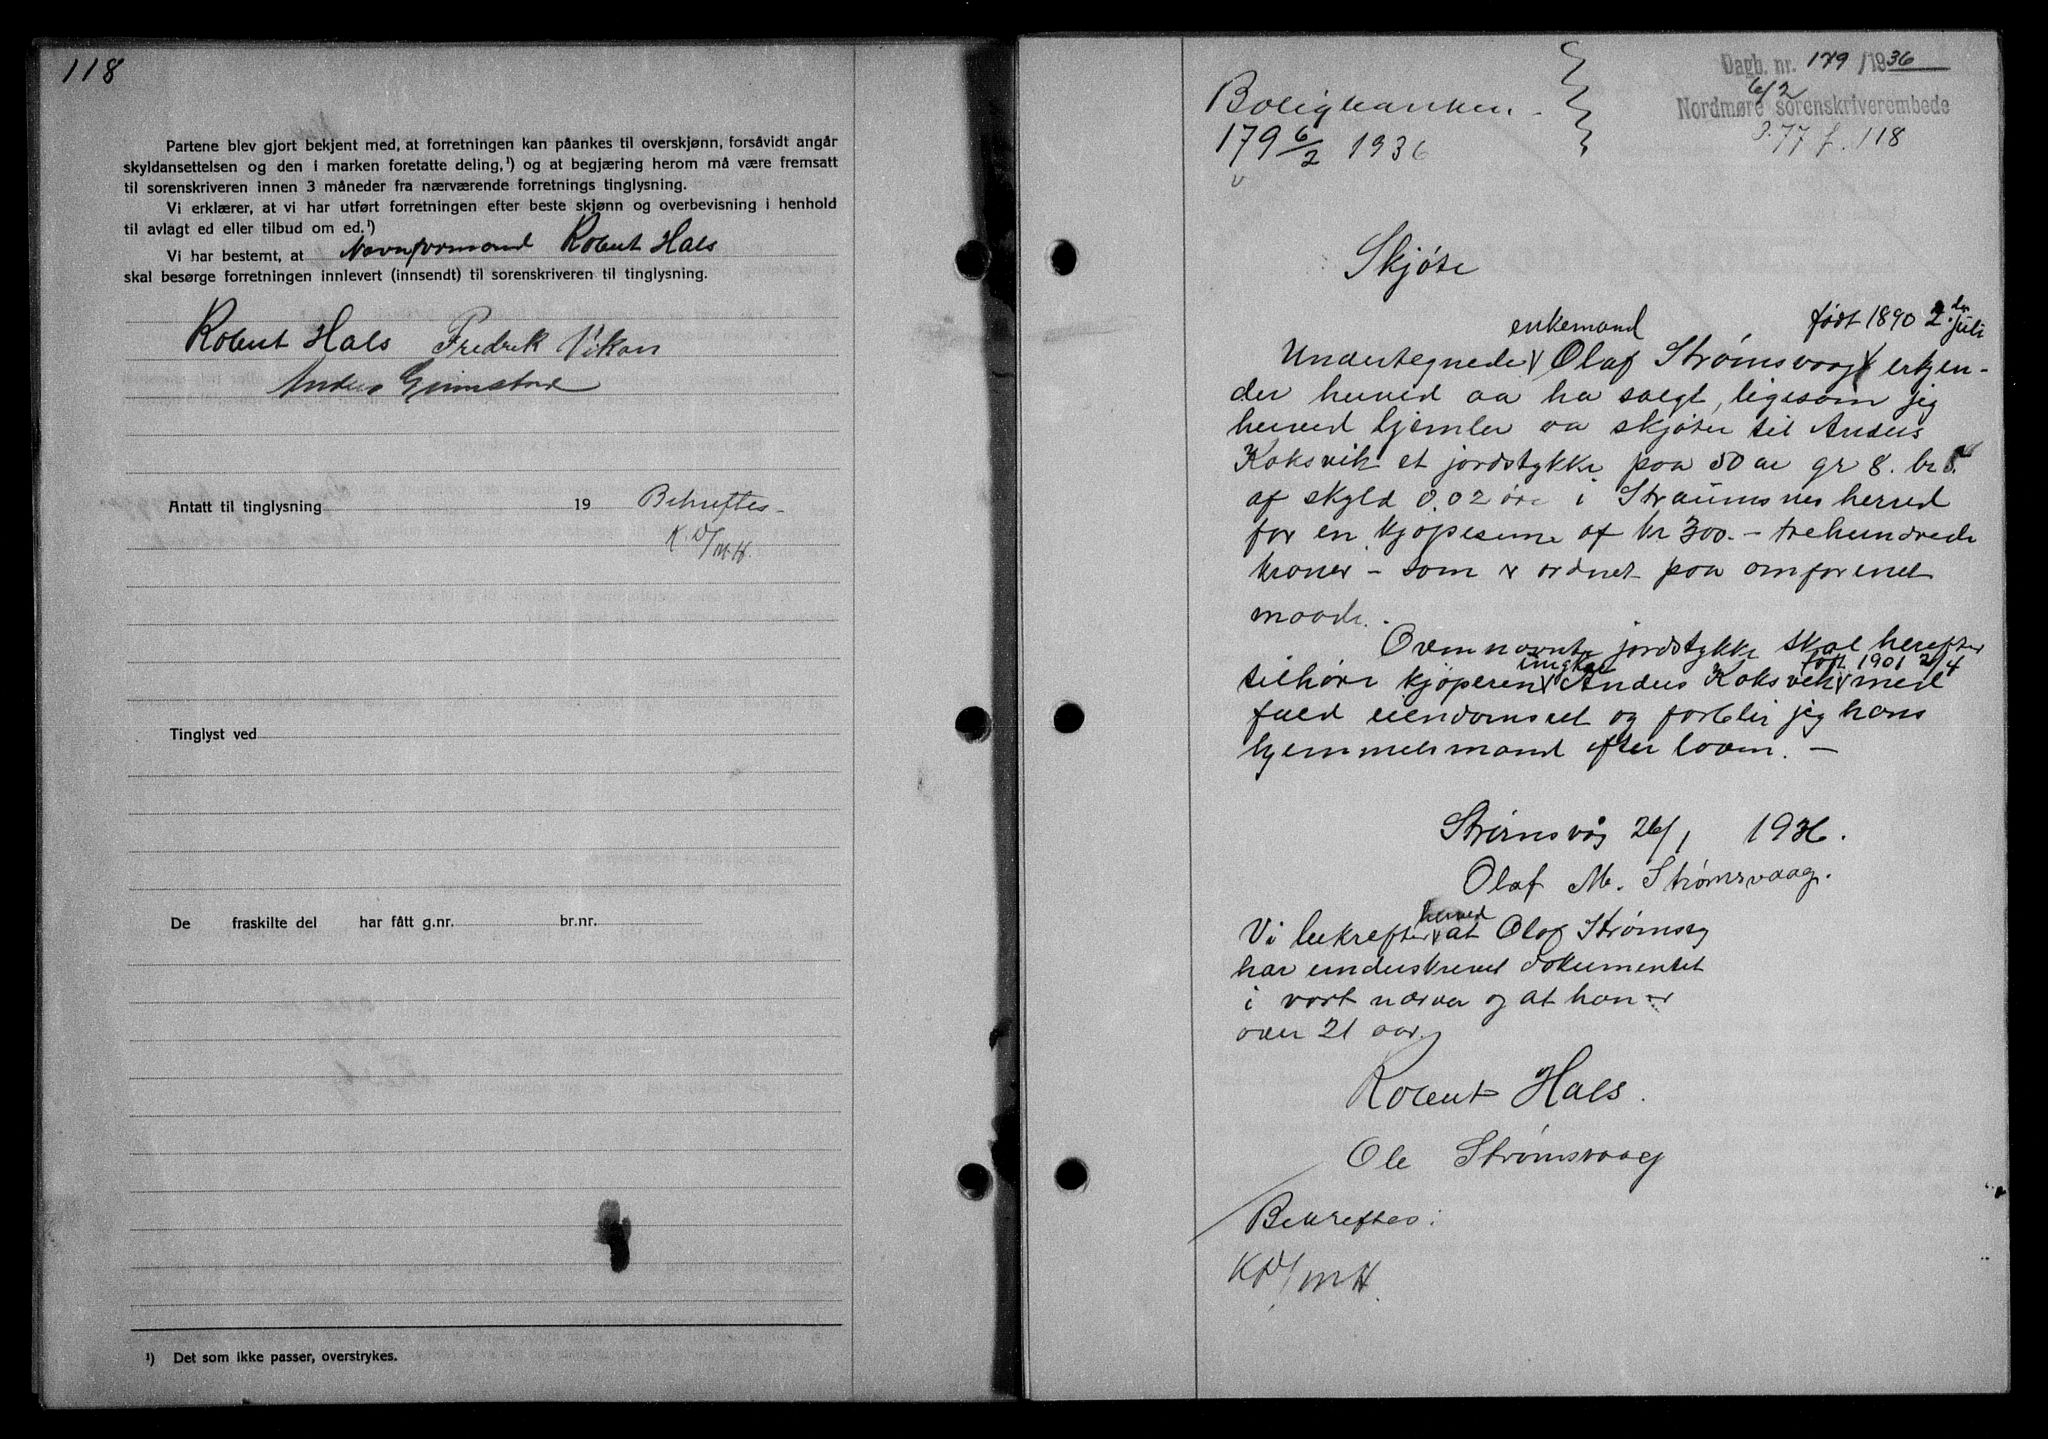 118
Partene blev gjort bekjent med, at forretningen kan påankes til overskjønn, forsåvidt angår
skyldansettelsen og den i marken foretatte deling,¹) og at begjæring herom må være fremsatt
til sorenskriveren innen 3 måneder fra nærværende forretnings tinglysning.
Vi erklærer, at vi har utført forretningen efter beste skjønn og overbevisning i henhold
til avlagt ed eller tilbud om ed.¹)
Vi har bestemt, at Navnformand Robert Hals
skal besørge forretningen innlevert (innsendt) til sorenskriveren til tinglysning.
Robert Hals Fredrik Vikan
Anders Grimstad
Antatt til tinglysning 19 Bekreftes
K.D/M.H.
Tinglyst ved
De fraskilte del har fått g.nr. br.nr.
¹) Det som ikke passer, overstrykes.
Dagb. nr. 179/1936
6/2
Nordmøre sorenskriverembede
P. 77 f. 118
Boligbanken.
179 6/2 1936
Skjøte
enkemand født 1890 2den juli
Undertegnede Olaf Strømsvaag erkjen-
der herved aa ha solgt, ligesom jeg
herved hjemler aa skjøter til Anders
Koksvik et jordstykke paa 50 ar gr 8. br 5
af skyld 0,02 øre i Straumsnes herred
for en kjøpesum af kr 300.- trehundrede
kroner - som er ordnet paa omforenet
maade.
Ovennævnte jordstykke skal herefter
ungkar født 1901 2/4
tilhøre kjøperen Anders Koksvik med
fuld eiendomsret og forblir jeg hans
hjemmelsmand efter loven. -
Strømsvåg 26/1 1936.
Olaf M. Strømsvaag.
herved
Vi bekrefter at Olaf Strømsvg
har underskrevet dokumentet
i vort nærvær og at han er
over 21 aar,
Robert Hals.
Ole Strømsvaag
Bekreftes:
KD/MH.